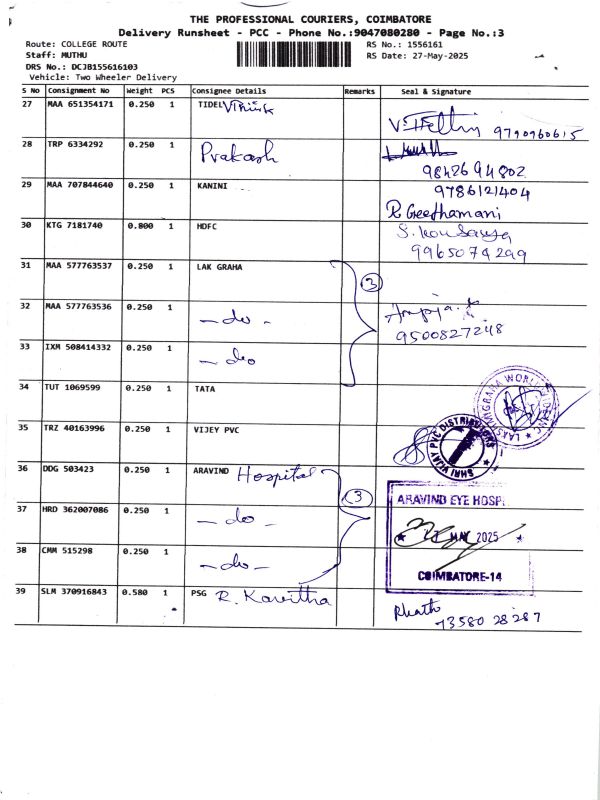 THE PROFESSIONAL COURIERS, COIMBATORE
Delivery Runsheet - PCC - Phone No.:9047080280 - Page No.:3
Route: COLLEGE ROUTE
Staff: MUTHU
DRS No.: DCJB155616103
Vehicle: Two Wheeler Delivery
RS No.: 1556161
RS Date: 27-May-2025
S No Consignment No Weight PCS Consignee Details Remarks Seal & Signature
27 MAA 651354171 0.250 1 TIDEL
9790960615
28 TRP 6334292 0.250 1 Prakash
9842694802
29 MAA 707844640 0.250 1 KANINI 9786121404
R Geethamani
30 KTG 7181740 0.800 1 HDFC
9965074299
31 MAA 577763537 0.250 1 LAK GRAHA
3
32 MAA 577763536 0.250 1 - do -
9500827248
33 IXM 508414332 0.250 1 - do
34 TUT 1069599 0.250 1 TATA
35 TRZ 40163996 0.250 1 VIJEY PVC
SHRI VIJAY PVC DISTRIBUTORS
36 DDG 503423 0.250 1 ARAVIND Hospital
3
ARAVIND EYE HOSP
37 HRD 362007086 0.250 1 - do -
MAY 2025
38 CMM 515298 0.250 1 - do -
COIMBATORE-14
39 SLM 370916843 0.580 1 PSG R. Kavitha
73580 28287